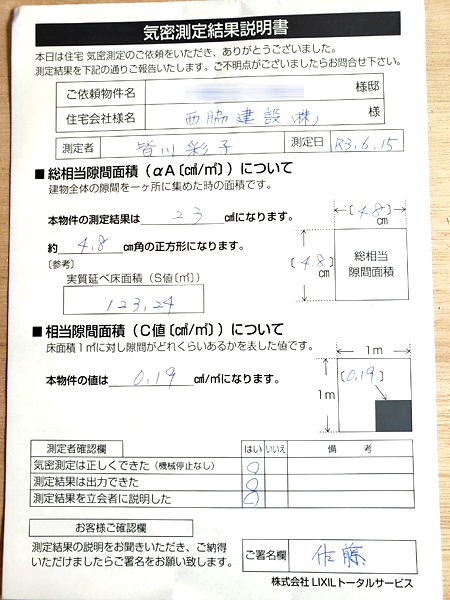 気密測定結果説明書
本日は住宅 気密測定のご依頼をいただき、ありがとうございました。
測定結果を下記の通りご報告いたします。ご不明点がございましたらお問合せ下さい。
ご依頼物件名 様邸
住宅会社様名 西脇建設(株) 様
測定者 皆川彩子 測定日 R3.6.15
■総相当隙間面積(αA〔c㎡/㎡〕)について
建物全体の隙間を一ヶ所に集めた時の面積です。
本物件の測定結果は 23 c㎡になります。
約 4.8 cm角の正方形になります。
〔参考〕
実質延べ床面積(S値〔㎡〕)
123.24
〔4.8〕
cm
〔4.8〕
cm
総相当
隙間面積
■相当隙間面積(C値〔c㎡/㎡〕)について
床面積1㎡に対し隙間がどれくらいあるかを表した値です。
本物件の値は 0.19 c㎡/㎡になります。
1m
1m
〔0.19〕
測定者確認欄 はい いいえ 備考
気密測定は正しくできた(機械停止なし) ○
測定結果は出力できた ○
測定結果を立会者に説明した ○
お客様ご確認欄
測定結果の説明をお聞きいただき、ご納得
いただけましたらご署名をお願い致します。
ご署名欄 佐藤
株式会社 LIXILトータルサービス